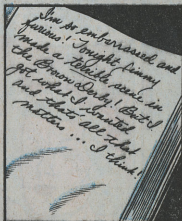 I'm so embarrassed and
furious! Tonight Jimmy
made a terrible scene in
the Brown Derby! But I
got what I wanted
and that's all that
matters... I think!